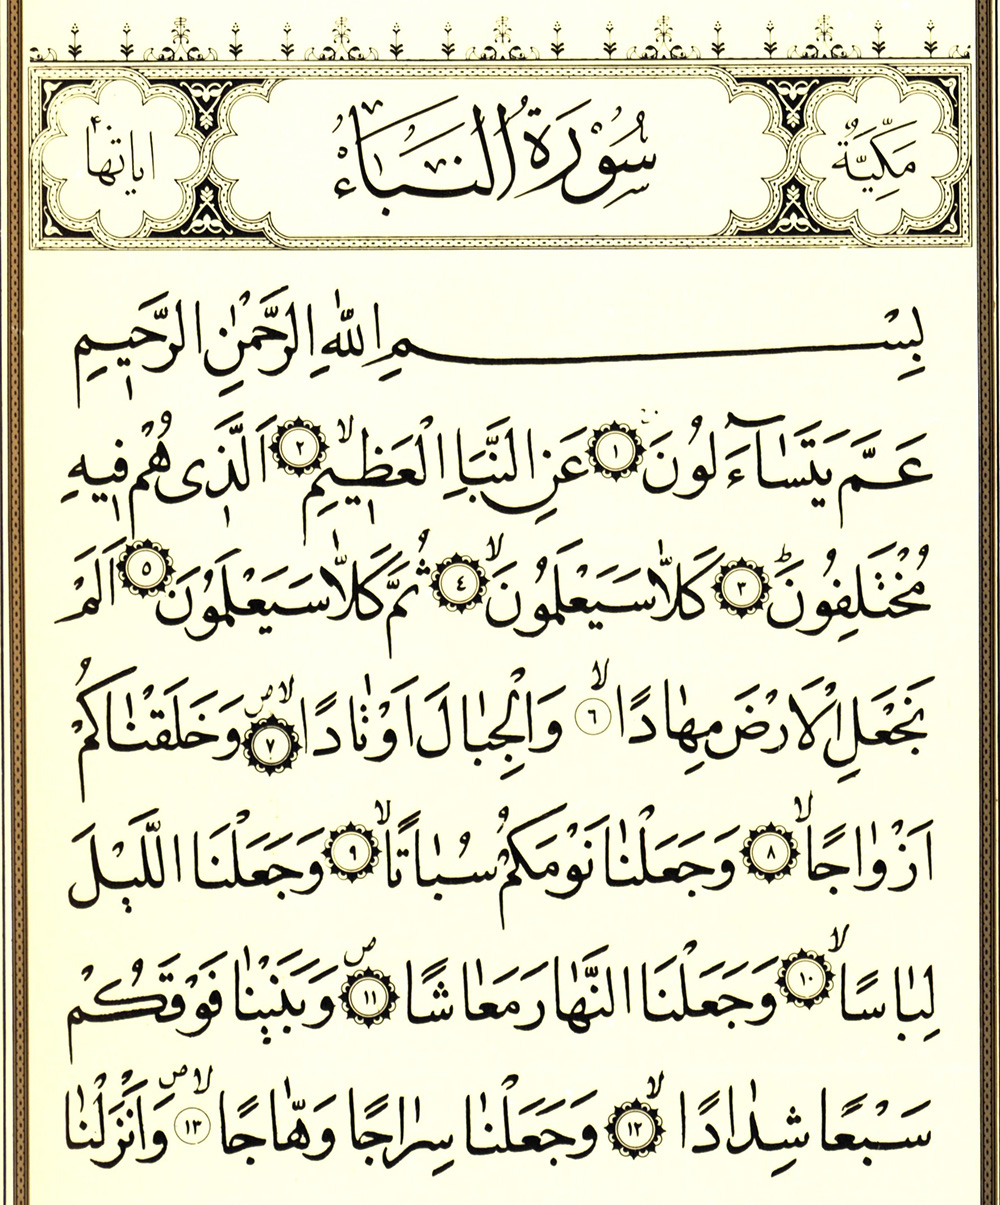 مَكِّيَّةٌ سُورَةُ النَّبَاءِ اياتها ٤٠
بِسْمِ اللّٰهِ الرَّحْمٰنِ الرَّحٖيمِ
عَمَّ يَتَسَٓاءَلُونَ ١ عَنِ النَّبَاِ الْعَظٖيمِۙ ٢ اَلَّذٖى هُمْ فٖيهِ
مُخْتَلِفُونَؕ ٣ كَلَّا سَيَعْلَمُونَۙ ٤ ثُمَّ كَلَّا سَيَعْلَمُونَ ٥ اَلَمْ
نَجْعَلِ الْاَرْضَ مِهَادًاۙ ٦ وَالْجِبَالَ اَوْتَادًاۙۖ ٧ وَخَلَقْنَاكُمْ
اَزْوَاجًاۙ ٨ وَجَعَلْنَا نَوْمَكُمْ سُبَاتًاۙ ٩ وَجَعَلْنَا الَّيْلَ
لِبَاسًاۙ ١٠ وَجَعَلْنَا النَّهَارَ مَعَاشًاۖ ١١ وَبَنَيْنَا فَوْقَكُمْ
سَبْعًا شِدَادًاۙ ١٢ وَجَعَلْنَا سِرَاجًا وَهَّاجًاۙۖ ١٣ وَاَنْزَلْنَا